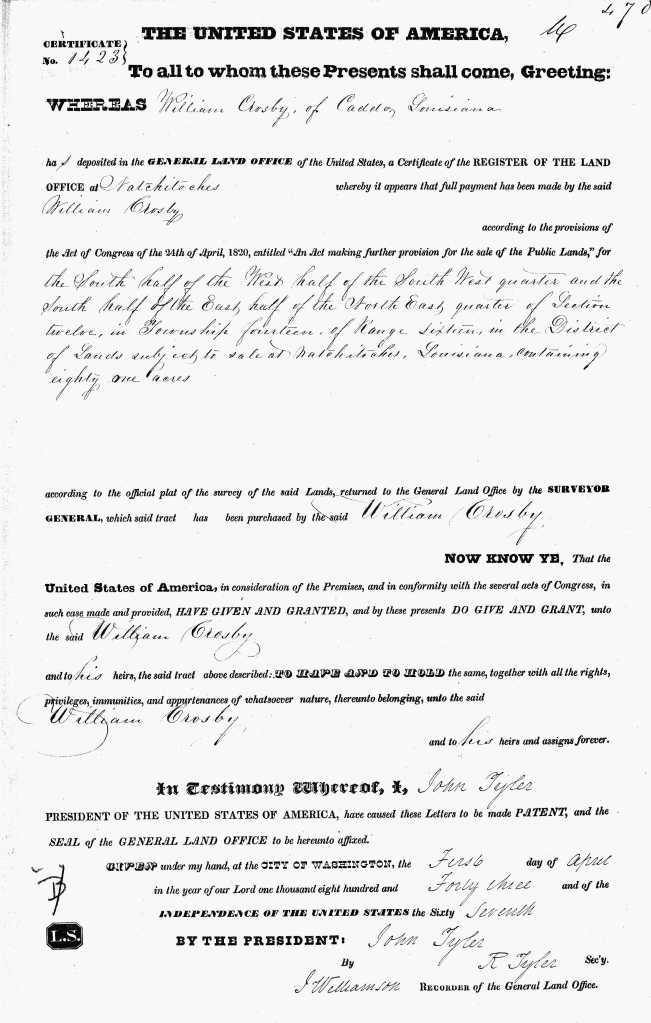 470
THE UNITED STATES OF AMERICA,
CERTIFICATE
No. 1423
To all to whom these Presents shall come, Greeting:
WHEREAS William Crosby, of Caddo, Louisiana
has deposited in the GENERAL LAND OFFICE of the United States, a Certificate of the REGISTER OF THE LAND
OFFICE at Natchitoches whereby it appears that full payment has been made by the said
William Crosby
according to the provisions of
the Act of Congress of the 24th of April, 1820, entitled "An Act making further provision for the sale of the Public Lands," for
the South half of the West half of the South West quarter and the
South half of the East half of the North East quarter of Section
twelve, in Township fourteen, of Range Sixteen, in the District
of Lands subject to sale at Natchitoches, Louisiana, containing
eighty one acres
according to the official plat of the survey of the said Lands, returned to the General Land Office by the SURVEYOR
GENERAL, which said tract has been purchased by the said William Crosby,
NOW KNOW YE, That the
United States of America, in consideration of the Premises, and in conformity with the several acts of Congress, in
such case made and provided, HAVE GIVEN AND GRANTED, and by these presents DO GIVE AND GRANT, unto
the said William Crosby
and to his heirs, the said tract above described: TO HAVE AND TO HOLD the same, together with all the rights,
privileges, immunities, and appurtenances of whatsoever nature, thereunto belonging, unto the said
William Crosby,
and to his heirs and assigns forever.
In Testimony Whereof, I, John Tyler
PRESIDENT OF THE UNITED STATES OF AMERICA, have caused these Letters to be made PATENT, and the
SEAL of the GENERAL LAND OFFICE to be hereunto affixed.
GIVEN under my hand, at the CITY OF WASHINGTON, the First day of April
in the year of our Lord one thousand eight hundred and Forty three and of the
INDEPENDENCE OF THE UNITED STATES the Sixty Seventh
L.S.
BY THE PRESIDENT: John Tyler
By R Tyler Sec'y.
J Williamson RECORDER of the General Land Office.